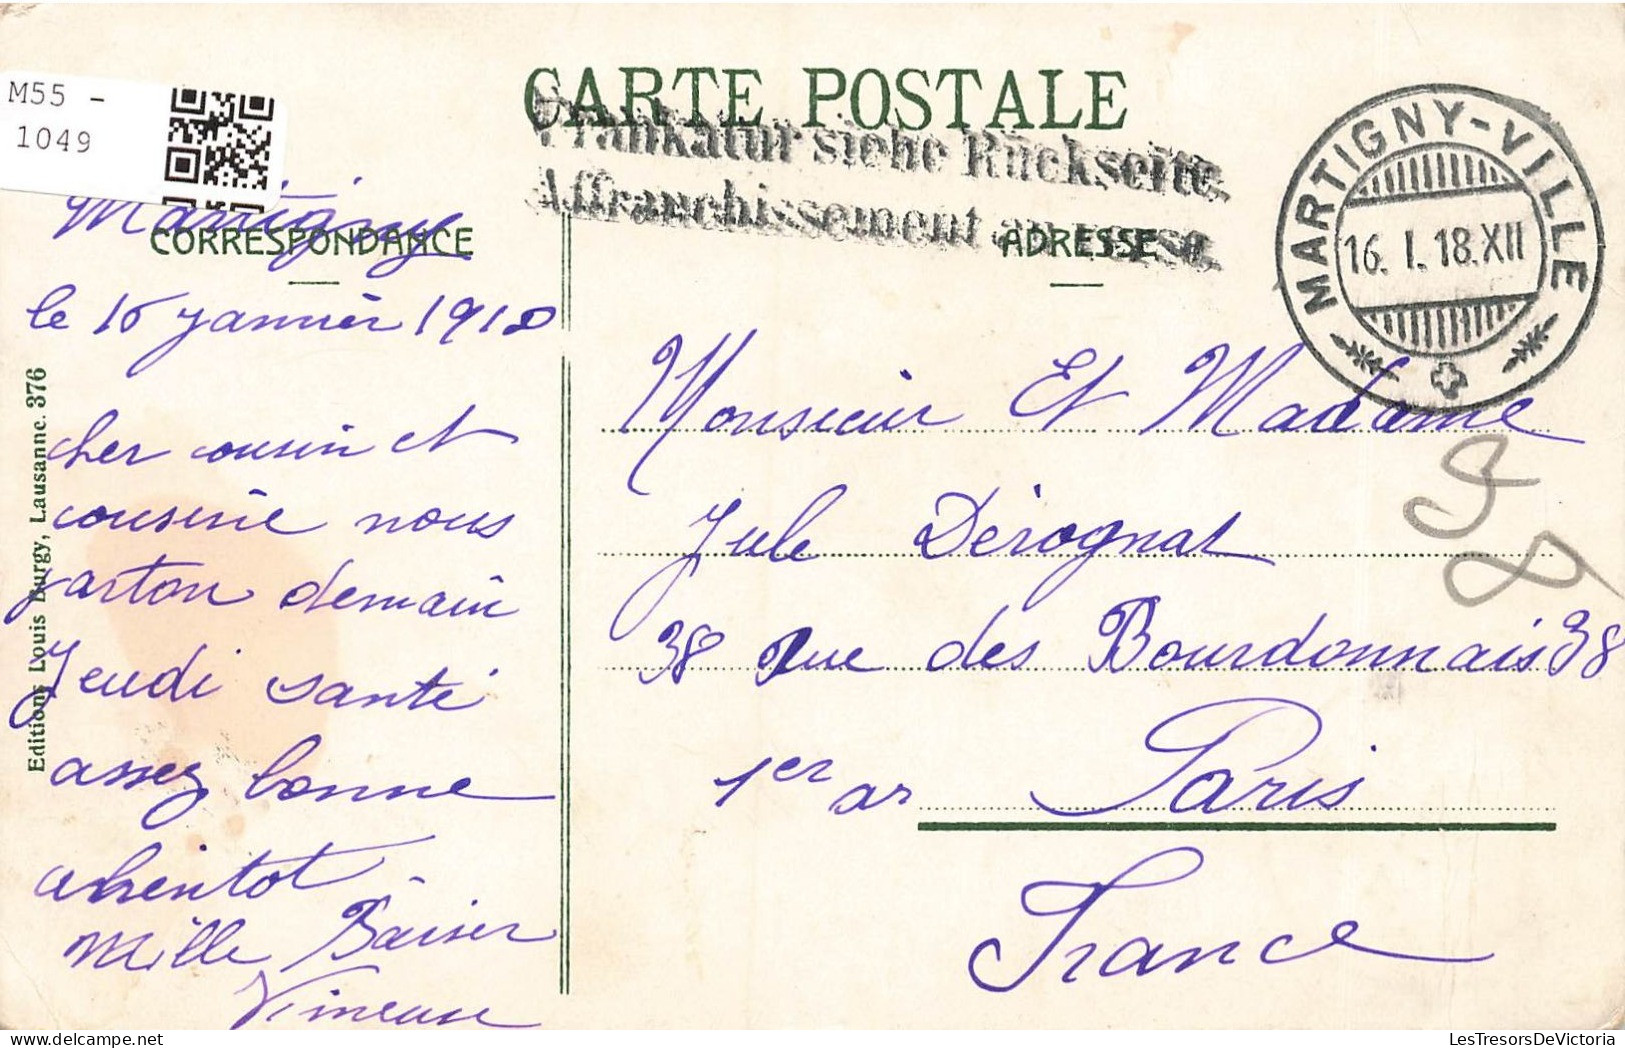 M55 -
1049
CARTE POSTALE
Frankatur siehe Rückseite.
Affranchissement au verso.
CORRESPONDANCE
ADRESSE
MARTIGNY-VILLE
16. I. 18. XII
Editions Louis Burgy, Lausanne. 376
Martigny
le 16 janvier 1918
cher cousin et
cousine nous
parton demain
Jeudi santé
assez bonne
abientot
Mille Baiser
Monsieur Et Madame
Jule Dérognat
38 Rue des Bourdonnais 38
1er ar Paris
France
LesTresorsDeVictoria